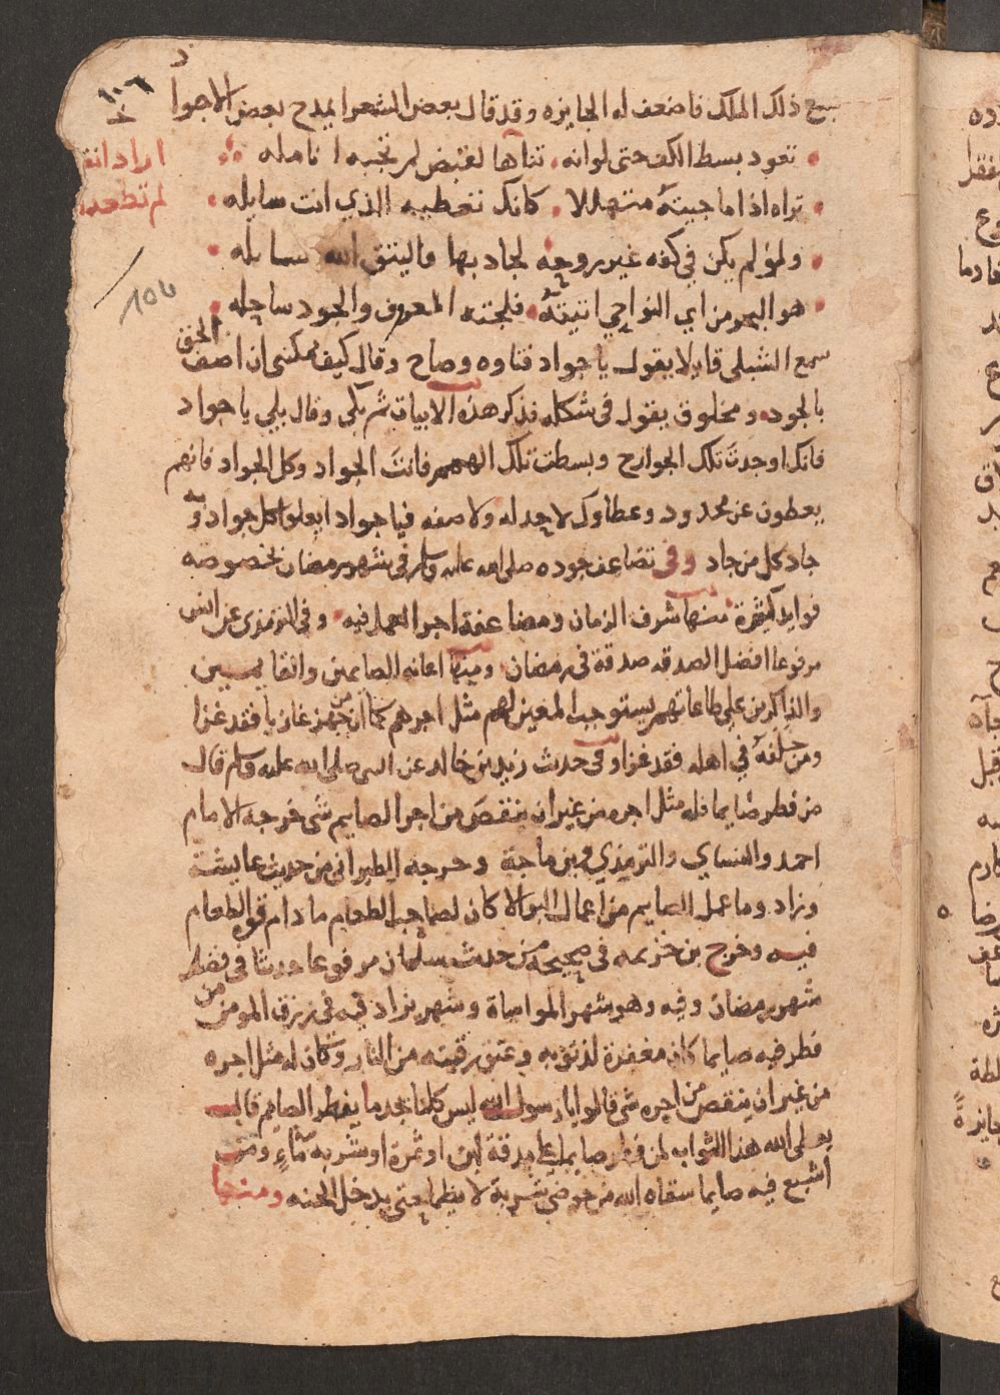 ١٠٦
سمع ذلك الملك فاضعف له الجايزه وقد قال بعض الشعرا يمدح بعض الاجوا
د
تعود بسط الكف حتى لوانه ثناها لقبض لم تجبه انامله
اراد انق
تراه اذا ما جيته متهللا كانك تعطيه الذي انت سايله
لم تطعه
ولو لم يكن في كفه غير روحه لجاد بها فاليتق الله سايله
هو البحر من اي النواحي اتيته فلجته المعروف والجود ساحله
106
سمع الشبلى قايلا يقول يا جواد فتاوه وصاح وقال كيف يمكننى ان اصف الحق
بالجود ومخلوق يقول فى شكله فذكر هذه الابيات ثم بكى وقال بلى يا جواد
فانك اوجدت تلك الجوارح وبسطت تلك الهمم فانت الجواد وكل الجواد فانهم
يعطون عن محدود وعطاوك لا حد له ولا صفه فيا جواد ايعلوا كل جواد وبه
جاد كل من جاد وفى تضاعف جوده صلى الله عليه وسلم فى شهر رمضان بخصوصه
فوايد كثيرة منها شرف الزمان ومضاعفة اجر العمل فيه وفى الترمذى عن انس
مرفوعا افضل الصدقه صدقة فى رمضان ومنها اعانه الصايمين والقايمين
والذاكرين على طاعاتهم يستوجب المعين لهم مثل اجرهم كما ان من جهز غازيا فقد غزا
ومن خلفه في اهله فقد غزا وفى حديث زيد بن خالد عن النبى صلى الله عليه وسلم قال
من فطر صايما فله مثل اجره من غير ان ينقص من اجر الصايم شى خرجه الامام
احمد والنساي والترمذي وبن ماجة وخرجه الطبرانى من حديث عايشة
وزاد وما عمل الصايم من اعمال البر الا كان لصاحب الطعام ما دام قوة الطعام
فيه وخرج بن خزيمه فى صحيحه من حديث سلمان مرفوعا حديثا فى فضل
شهر رمضان وفيه وهو شهر المواساة وشهر يزاد فيه فى رزق المومن من
فطر فيه صايما كان مغفرة لذنوبه وعتق رقبته من النار وكان له مثل اجره
من غير ان ينقص من اجره شى قالوا يا رسول الله ليس كلنا يجد ما يفطر الصايم قال
يعطى الله هذا الثواب لمن فطر صايما على مذقة لبن او تمرة او شربة ماء ومن
اشبع فيه صايما سقاه الله من حوضى شربة لا يظما حتى يدخل الجنه ومنها